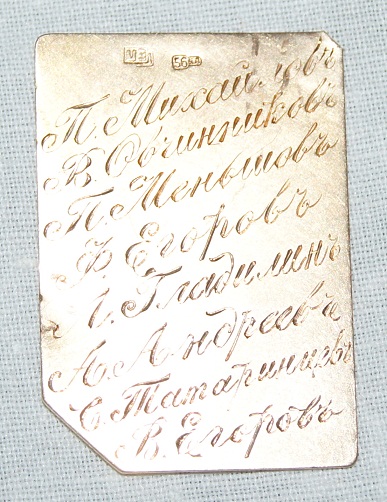 56
П. Михайловъ
В. Овчинниковъ
П. Меньшовъ
Ф. Егоровъ
Гладилинъ
А. Андреевъ
С. Татаринцевъ
В. Егоровъ